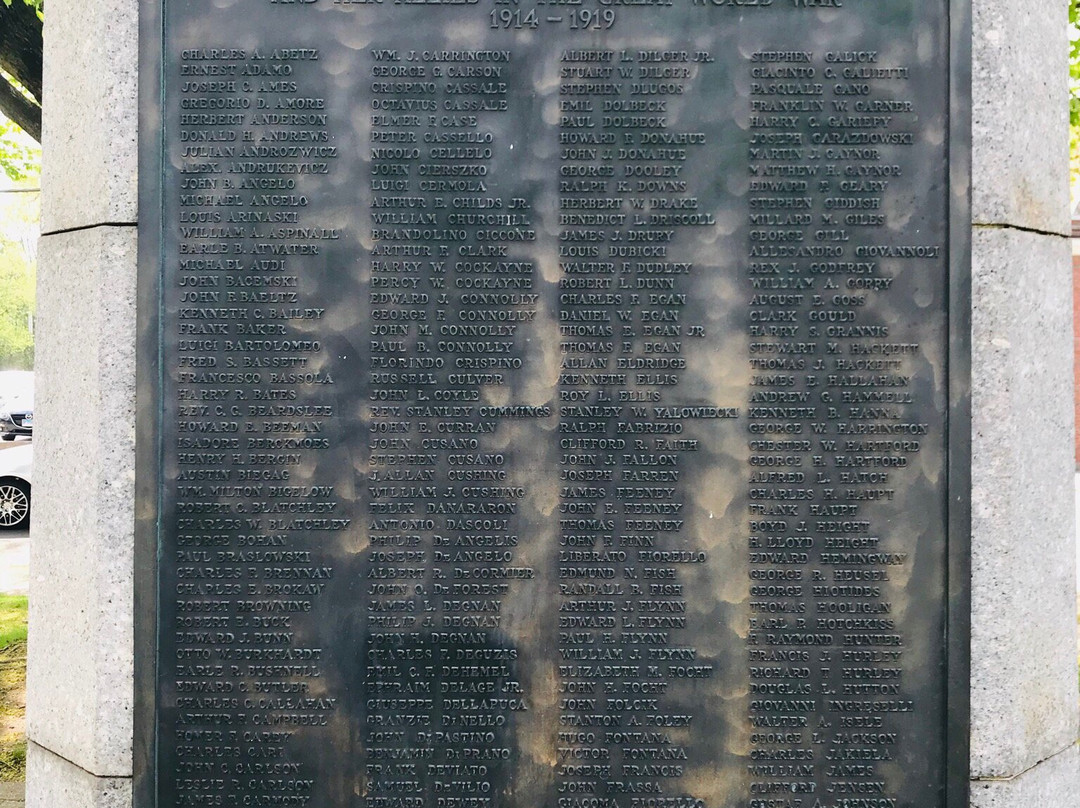 AND HER ALLIES IN THE GREAT WORLD WAR
1914 – 1919
CHARLES A. ABETZ
ERNEST ADAMO
JOSEPH C. AMES
GREGORIO D. AMORE
HERBERT ANDERSON
DONALD H. ANDREWS
JULIAN ANDROZWICZ
ALEX. ANDRUKEVICZ
JOHN B. ANGELO
MICHAEL ANGELO
LOUIS ARINASKI
WILLIAM A. ASPINALL
EARLE B. ATWATER
MICHAEL AUDI
JOHN BACEMSKI
JOHN F. BAELTZ
KENNETH C. BAILEY
FRANK BAKER
LUIGI BARTOLOMEO
FRED S. BASSETT
FRANCESCO BASSOLA
HARRY R. BATES
REV. C. G. BEARDSLEE
HOWARD E. BEEMAN
ISADORE BERCKMOES
HENRY H. BERGIN
AUSTIN BIEGAG
WM. MILTON BIGELOW
ROBERT C. BLATCHLEY
CHARLES W. BLATCHLEY
GEORGE BOHAN
PAUL BRASLOWSKI
CHARLES F. BRENNAN
CHARLES E. BROKAW
ROBERT BROWNING
ROBERT E. BUCK
EDWARD J. BUNN
OTTO W. BURKHARDT
EARLE R. BUSHNELL
EDWARD C. BUTLER
CHARLES C. CALLAHAN
ARTHUR F. CAMPBELL
HOMER F. CAREY
CHARLES CARL
JOHN G. CARLSON
LESLIE R. CARLSON
JAMES F. CARMODY
WM. J. CARRINGTON
GEORGE G. CARSON
CRISPINO CASSALE
OCTAVIUS CASSALE
ELMER F. CASE
PETER CASSELLO
NICOLO CELLELO
JOHN CIERSZKO
LUIGI CERMOLA
ARTHUR E. CHILDS JR.
WILLIAM CHURCHILL
BRANDOLINO CICCONE
ARTHUR F. CLARK
HARRY W. COCKAYNE
PERCY W. COCKAYNE
EDWARD J. CONNOLLY
GEORGE F. CONNOLLY
JOHN M. CONNOLLY
PAUL B. CONNOLLY
FLORINDO CRISPINO
RUSSELL CULVER
JOHN L. COYLE
REV. STANLEY CUMMINGS
JOHN E. CURRAN
JOHN CUSANO
STEPHEN CUSANO
J. ALLAN CUSHING
WILLIAM J. CUSHING
FELIX DANARARON
ANTONIO DASCOLI
PHILIP DE ANGELIS
JOSEPH DE ANGELO
ALBERT R. DE CORMIER
JOHN Q. DE FOREST
JAMES L. DEGNAN
PHILIP J. DEGNAN
JOHN H. DEGNAN
CHARLES F. DEGUZIS
EMIL C. F. DEHEMEL
EPHRAIM DELAGE JR.
GIUSEPPE DELLAPUCA
GRANZIE DI NELLO
JOHN DI PASTINO
BENJAMIN DI PRANO
FRANK DEVIATO
SAMUEL DE VILIO
EDWARD
ALBERT L. DILGER JR.
STUART W. DILGER
STEPHEN DLUGOS
EMIL DOLBECK
PAUL DOLBECK
HOWARD F. DONAHUE
JOHN J. DONAHUE
GEORGE DOOLEY
RALPH K. DOWNS
HERBERT W. DRAKE
BENEDICT L. DRISCOLL
JAMES J. DRUPY
LOUIS DUBICKI
WALTER F. DUDLEY
ROBERT L. DUNN
CHARLES F. EGAN
DANIEL W. EGAN
THOMAS E. EGAN JR
THOMAS F. EGAN
ALLAN ELDRIDGE
KENNETH ELLIS
ROY L. ELLIS
STANLEY W. YALOWIECKI
RALPH FABRIZIO
CLIFFORD R. FAITH
JOHN J. FALLON
JOSEPH FARREN
JAMES FEENEY
JOHN E. FEENEY
THOMAS FEENEY
JOHN F. FINN
LIBERATO FIORELLO
EDMUND N. FISH
RANDALL B. FISH
ARTHUR J. FLYNN
EDWARD L. FLYNN
PAUL H. FLYNN
WILLIAM J. FLYNN
ELIZABETH M. FOCHT
JOHN H. FOCHT
JOHN FOLCIK
STANTON A. FOLEY
HUGO FONTANA
VICTOR FONTANA
JOSEPH FRANCIS
JOHN FRASSA
GIACOMA FIORELLO
STEPHEN GALICK
GIACINTO C. GALIETTI
PASQUALE GANO
FRANKLIN W. GARNER
HARRY C. GARIEPY
JOSEPH GARAZDOWSKI
MARTIN J. GAYNOR
MATTHEW H. GAYNOR
EDWARD F. GEARY
STEPHEN GIDDISH
MILLARD M. GILES
GEORGE GILL
ALLESANDRO GIOVANNOLI
REX J. GODFREY
WILLIAM A. GORRY
AUGUST E. GOSS
CLARK GOULD
HARRY S. GRANNIS
STEWART M. HACKETT
THOMAS J. HACKETT
JAMES E. HALLAHAN
ANDREW G. HAMMELL
KENNETH B. HANNA
GEORGE W. HARRINGTON
CHESTER W. HARTFORD
GEORGE H. HARTFORD
ALFRED L. HATCH
CHARLES H. HAUPT
FRANK HAUPT
BOYD J. HEIGHT
H. LLOYD HEIGHT
EDWARD HEMINGWAY
GEORGE R. HEUSEL
GEORGE HIOTIDES
THOMAS HOOLIGAN
EARL P. HOTCHKISS
F. RAYMOND HUNTER
FRANCIS J. HURLEY
RICHARD F. HURLEY
DOUGLAS L. HUTTON
GIOVANNI INGRESELLI
WALTER A. ISELE
GEORGE L. JACKSON
CHARLES JAKIELA
WILLIAM JAMES
CLIFFORD JENSEN
GUSTAF A. JOHNSON